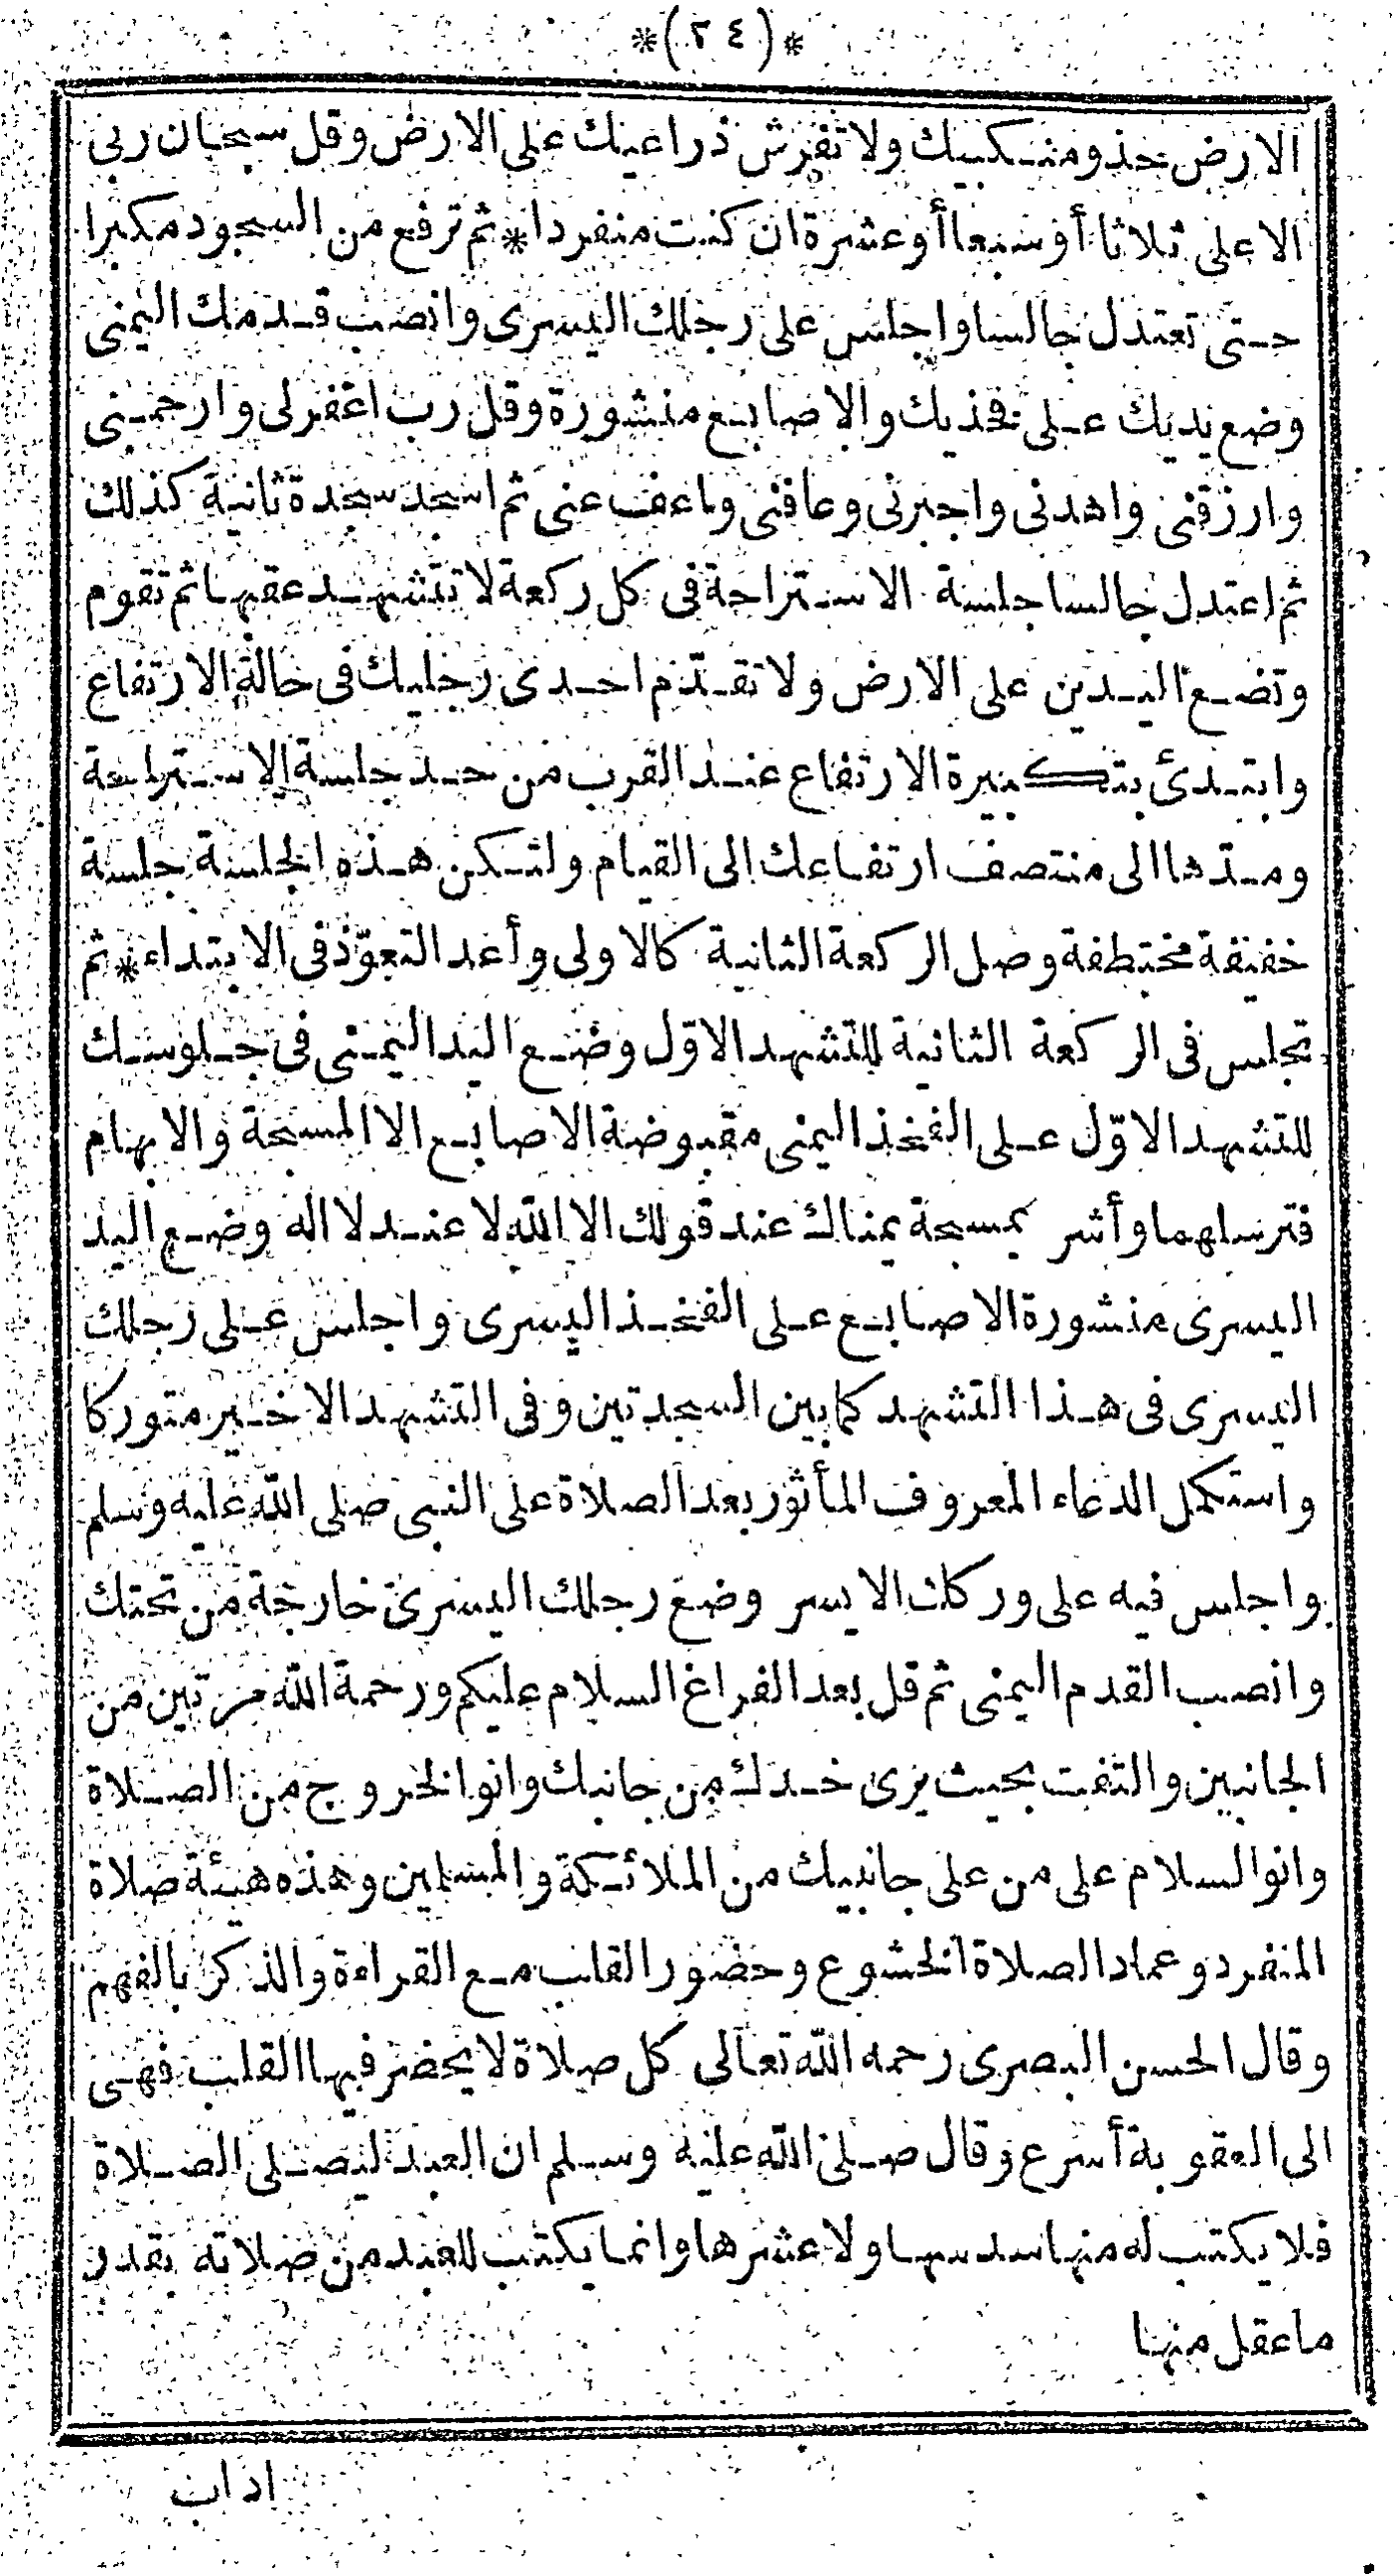 *(٢٤)*
الارض حذو منكبيك ولا تفرش ذراعيك على الارض وقل سبحان ربى
الاعلى ثلاثا أو سبعا أو عشرة ان كنت منفردا * ثم ترفع من السجود مكبرا
حتى تعتدل جالسا واجلس على رجلك اليسرى وانصب قدمك اليمنى
وضع يديك على فخذيك والاصابع منشورة وقل رب اغفر لى وارحمنى
وارزقنى واهدنى واجبرنى وعافنى واعف عنى ثم اسجد سجدة ثانية كذلك
ثم اعتدل جالسا جلسة الاستراحة فى كل ركعة لا تتشهد عقبها ثم تقوم
وتضع اليدين على الارض ولا تقدّم احدى رجليك فى حالة الارتفاع
وابتدئ بتكبيرة الارتفاع عند القرب من حد جلسة الاستراحة
ومدّها الى منتصف ارتفاعك الى القيام ولتكن هذه الجلسة جلسة
خفيفة مختطفة وصل الركعة الثانية كالاولى وأعد التعوّذ فى الابتداء * ثم
تجلس فى الركعة الثانية للتشهد الاوّل وضع اليد اليمنى فى جلوسك
للتشهد الاوّل على الفخذ اليمنى مقبوضة الاصابع الا المسبحة والابهام
فترسلهما وأشر بمسبحة يمناك عند قولك الا الله لا عند لا اله وضع اليد
اليسرى منشورة الاصابع على الفخذ اليسرى واجلس على رجلك
اليسرى فى هذا التشهد كما بين السجدتين وفى التشهد الاخير متوركا
واستكمل الدعاء المعروف المأثور بعد الصلاة على النبى صلى الله عليه وسلم
واجلس فيه على وركك الايسر وضع رجلك اليسرى خارجة من تحتك
وانصب القدم اليمنى ثم قل بعد الفراغ السلام عليكم ورحمة الله مرّتين من
الجانبين والتفت بحيث يرى خدك من جانبك وانوا الخروج من الصلاة
وانوا السلام على من على جانبيك من الملائكة والمسلمين وهذه هيئة صلاة
المنفرد وعماد الصلاة الخشوع وحضور القلب مع القراءة والذكر بالفهم
وقال الحسن البصرى رحمه الله تعالى كل صلاة لا يحضر فيها القلب فهى
الى العقوبة أسرع وقال صلى الله عليه وسلم ان العبد ليصلى الصلاة
فلا يكتب له منها سدسها ولا عشرها وانما يكتب للعبد من صلاته بقدر
ما عقل منها
اداب